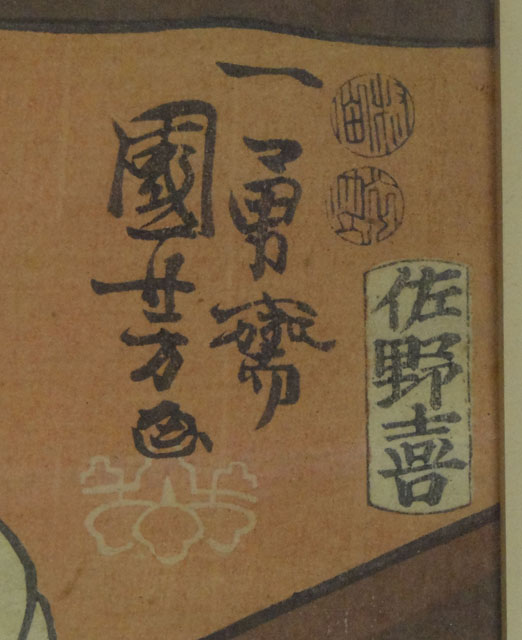 一勇齋
國芳画
佐野喜